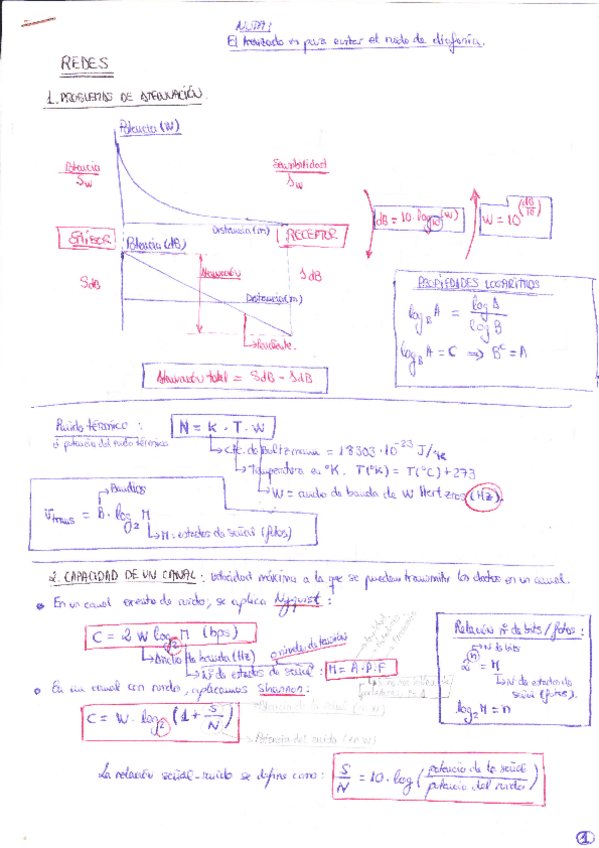 NOTA:
El trenzado es para evitar el ruido de diafonía.
REDES
1. PROBLEMAS DE ATENUACIÓN.
Potencia (W)
Potencia
Sw
Sensibilidad
sw
Distancia (m)
EMISOR
RECEPTOR
Potencia (dB)
SdB
Atenuación
sdB
Distancia (m)
Pendiente.
Atenuación total = SdB - sdB
dB = 10 · log10(W)
W = 10^(dB/10)
PROPIEDADES LOGARITMOS
logB A = log A / log B
logB A = C ⟹ B^C = A
Ruido térmico :
ó potencia del ruido térmico
N = K · T · W
Cte. de Boltzmann = 1'3803 · 10^-23 J/°K
Temperatura en °K. T(°K) = T(°C) + 273
W = ancho de banda de W Hertzios (Hz).
Baudios
Vtrans = B · log2 M
M: estados de señal (fotos)
2. CAPACIDAD DE UN CANAL: velocidad máxima a la que se pueden transmitir los datos en un canal.
En un canal exento de ruido, se aplica Nyquist :
C = 2 W log2 M (bps)
Ancho de banda (Hz)
ó niveles de tensión
Nº de estados de señal :
M = A · P · F
Relación nº de bits / fotos :
nº de bits
2^n = M
Nº de estados de señal (fotos).
log2 M = n
En un canal con ruido, aplicamos Shannon:
C = W · log2 (1 + S/N)
Potencia de la señal (en W)
Potencia del ruido (en W)
La relación señal-ruido se define como :
S/N = 10 · log (potencia de la señal / potencia del ruido)
1